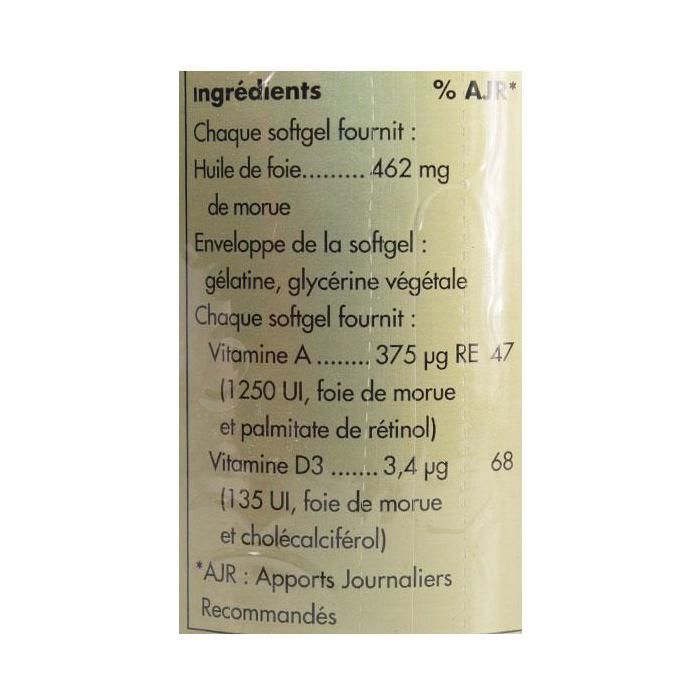 Ingrédients % AJR*
Chaque softgel fournit :
Huile de foie......... 462 mg
de morue
Enveloppe de la softgel :
gélatine, glycérine végétale
Chaque softgel fournit :
Vitamine A ........ 375 µg RE 47
(1250 UI, foie de morue
et palmitate de rétinol)
Vitamine D3 ....... 3,4 µg 68
(135 UI, foie de morue
et cholécalciférol)
*AJR : Apports Journaliers
Recommandés